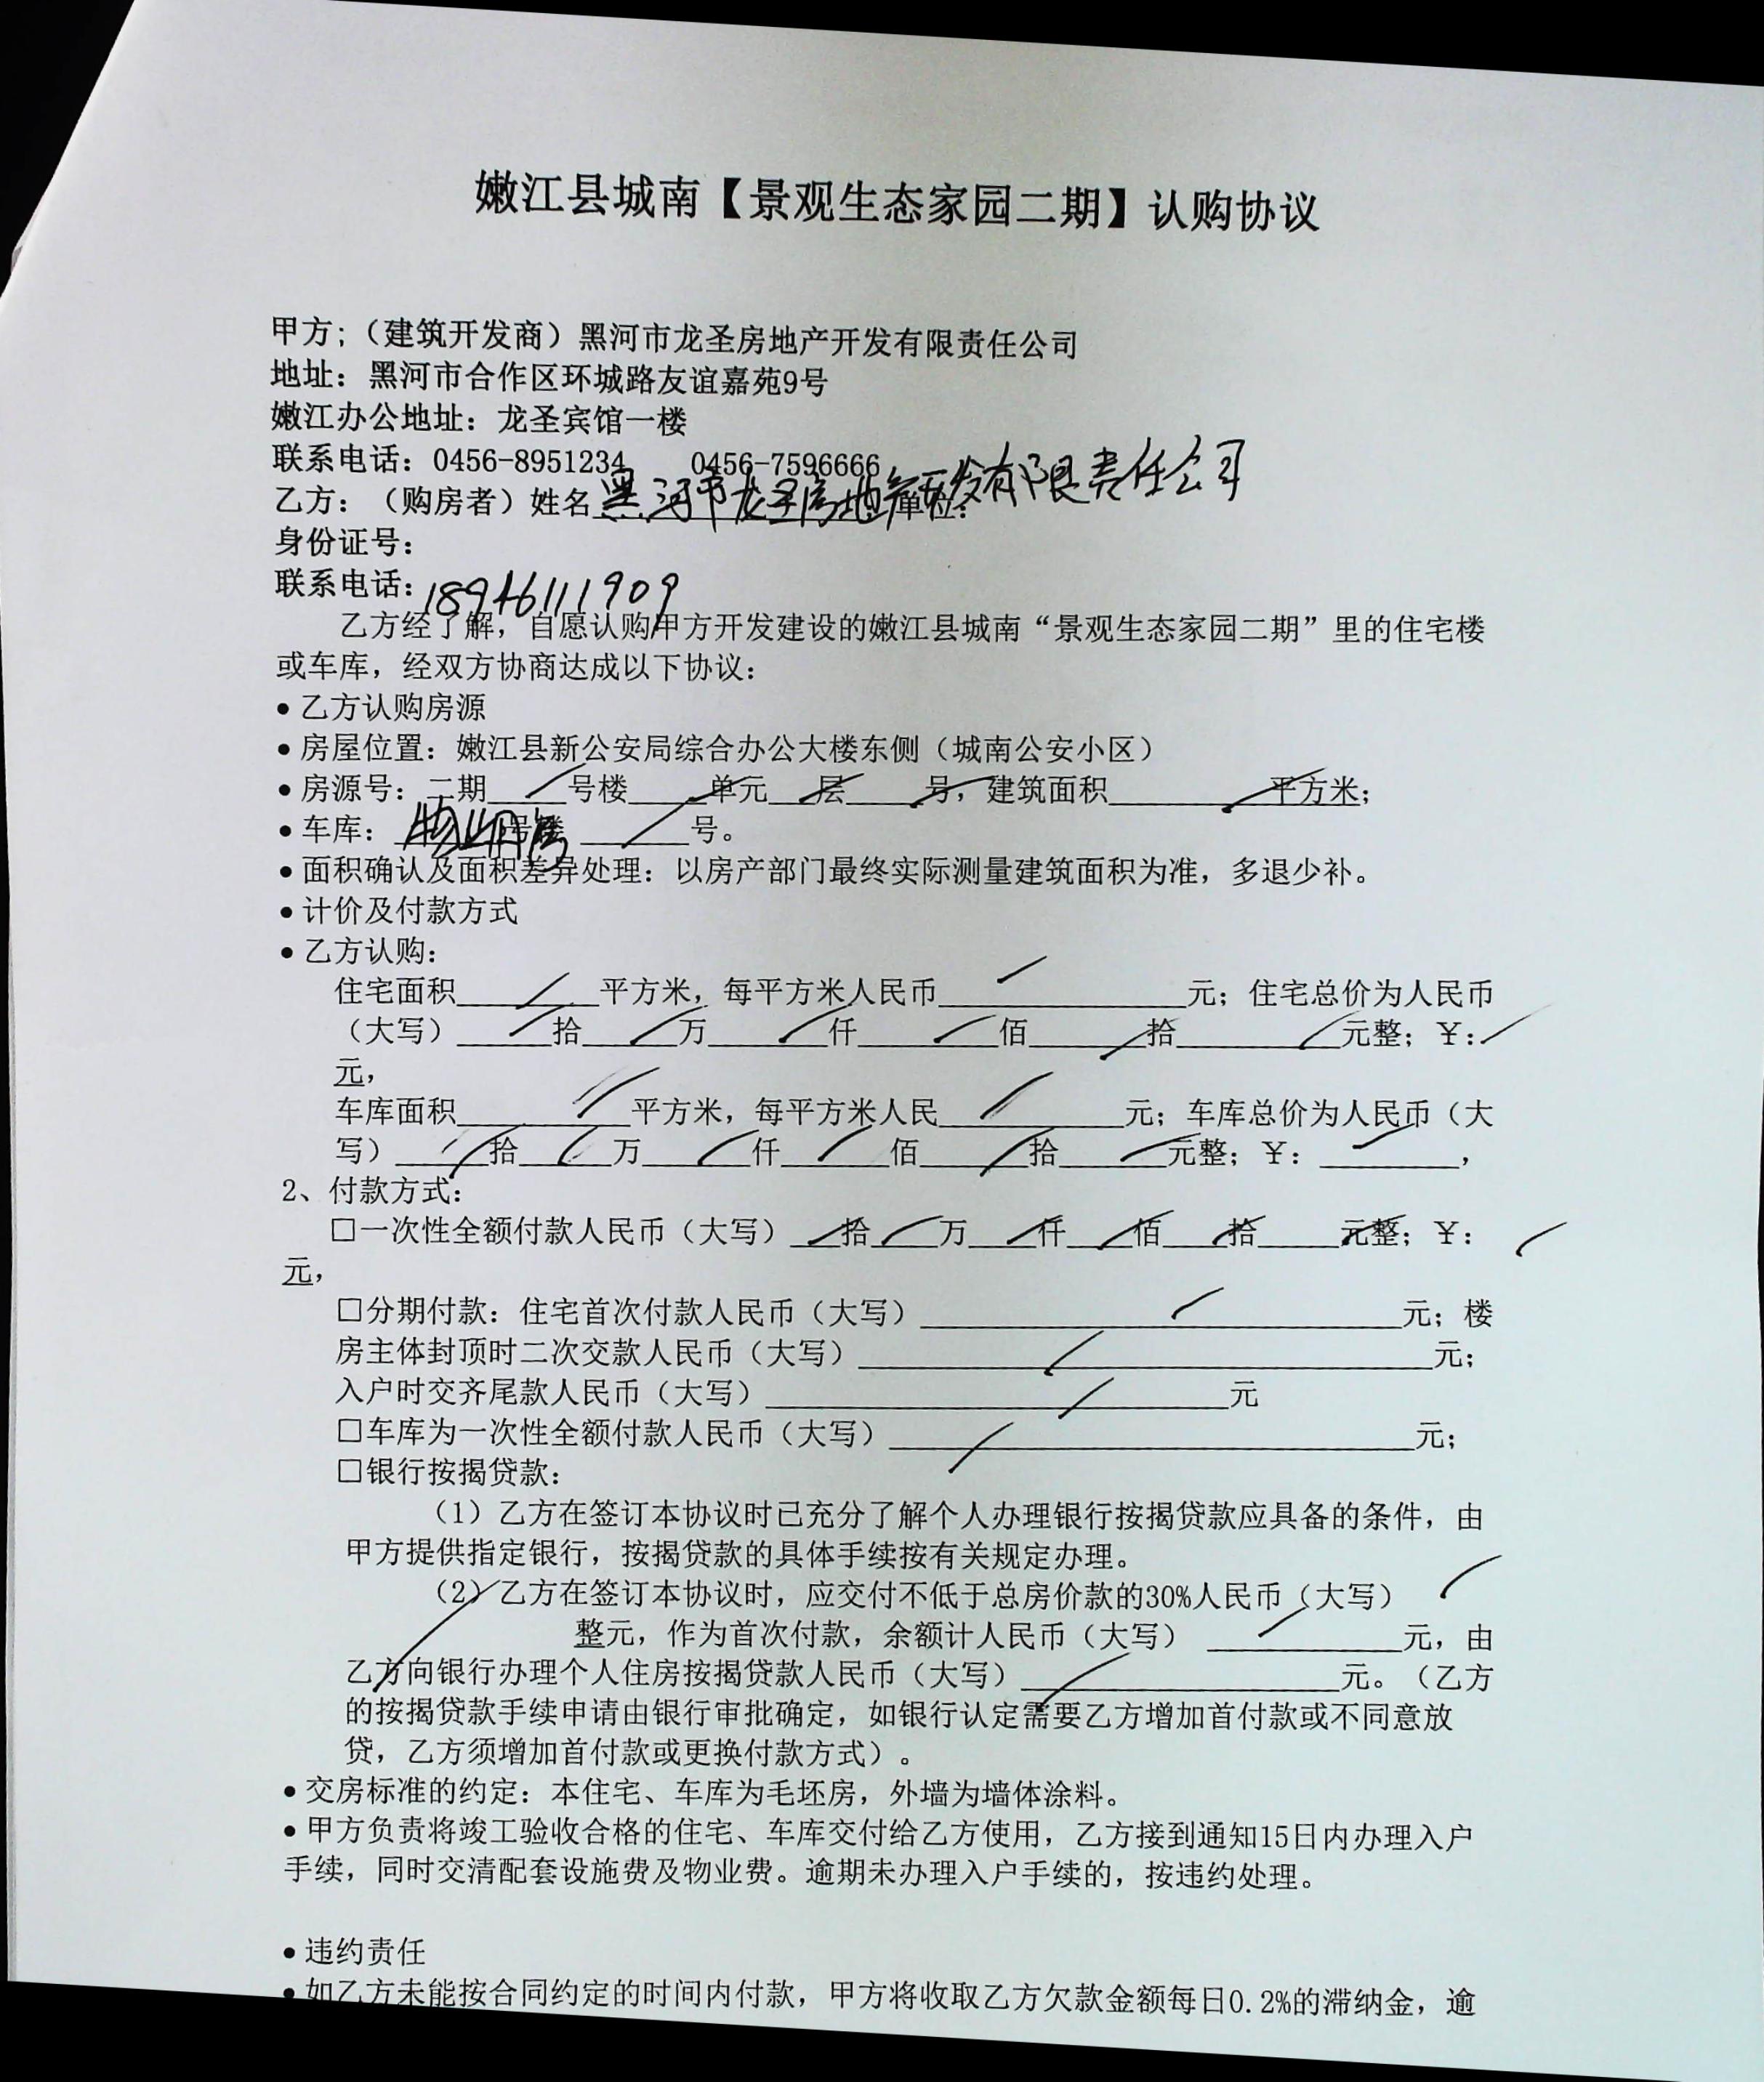 嫩江县城南【景观生态家园二期】认购协议
甲方;（建筑开发商）黑河市龙圣房地产开发有限责任公司
地址：黑河市合作区环城路友谊嘉苑9号
嫩江办公地址：龙圣宾馆一楼
联系电话：0456-8951234 0456-7596666
乙方：（购房者）姓名 黑河市龙圣房地产开发有限责任公司 单位：
身份证号：
联系电话：18946111909
乙方经了解，自愿认购甲方开发建设的嫩江县城南“景观生态家园二期”里的住宅楼
或车库，经双方协商达成以下协议：
•乙方认购房源
•房屋位置：嫩江县新公安局综合办公大楼东侧（城南公安小区）
•房源号：二期____号楼____单元____层____号，建筑面积________平方米；
•车库：物业用房 号楼 ____号。
•面积确认及面积差异处理：以房产部门最终实际测量建筑面积为准，多退少补。
•计价及付款方式
•乙方认购：
住宅面积________平方米，每平方米人民币________元；住宅总价为人民币
（大写）____拾____万____仟____佰____拾____元整；￥：
元，
车库面积________平方米，每平方米人民________元；车库总价为人民币（大
写）____拾____万____仟____佰____拾____元整；￥：________，
2、付款方式：
□一次性全额付款人民币（大写）____拾____万____仟____佰____拾____元整；￥：
元，
□分期付款：住宅首次付款人民币（大写）________元；楼
房主体封顶时二次交款人民币（大写）________元；
入户时交齐尾款人民币（大写）________元
□车库为一次性全额付款人民币（大写）________元；
□银行按揭贷款：
（1）乙方在签订本协议时已充分了解个人办理银行按揭贷款应具备的条件，由
甲方提供指定银行，按揭贷款的具体手续按有关规定办理。
（2）乙方在签订本协议时，应交付不低于总房价款的30%人民币（大写）
整元，作为首次付款，余额计人民币（大写）________元，由
乙方向银行办理个人住房按揭贷款人民币（大写）________元。（乙方
的按揭贷款手续申请由银行审批确定，如银行认定需要乙方增加首付款或不同意放
贷，乙方须增加首付款或更换付款方式）。
•交房标准的约定：本住宅、车库为毛坯房，外墙为墙体涂料。
•甲方负责将竣工验收合格的住宅、车库交付给乙方使用，乙方接到通知15日内办理入户
手续，同时交清配套设施费及物业费。逾期未办理入户手续的，按违约处理。
•违约责任
•如乙方未能按合同约定的时间内付款，甲方将收取乙方欠款金额每日0.2%的滞纳金，逾